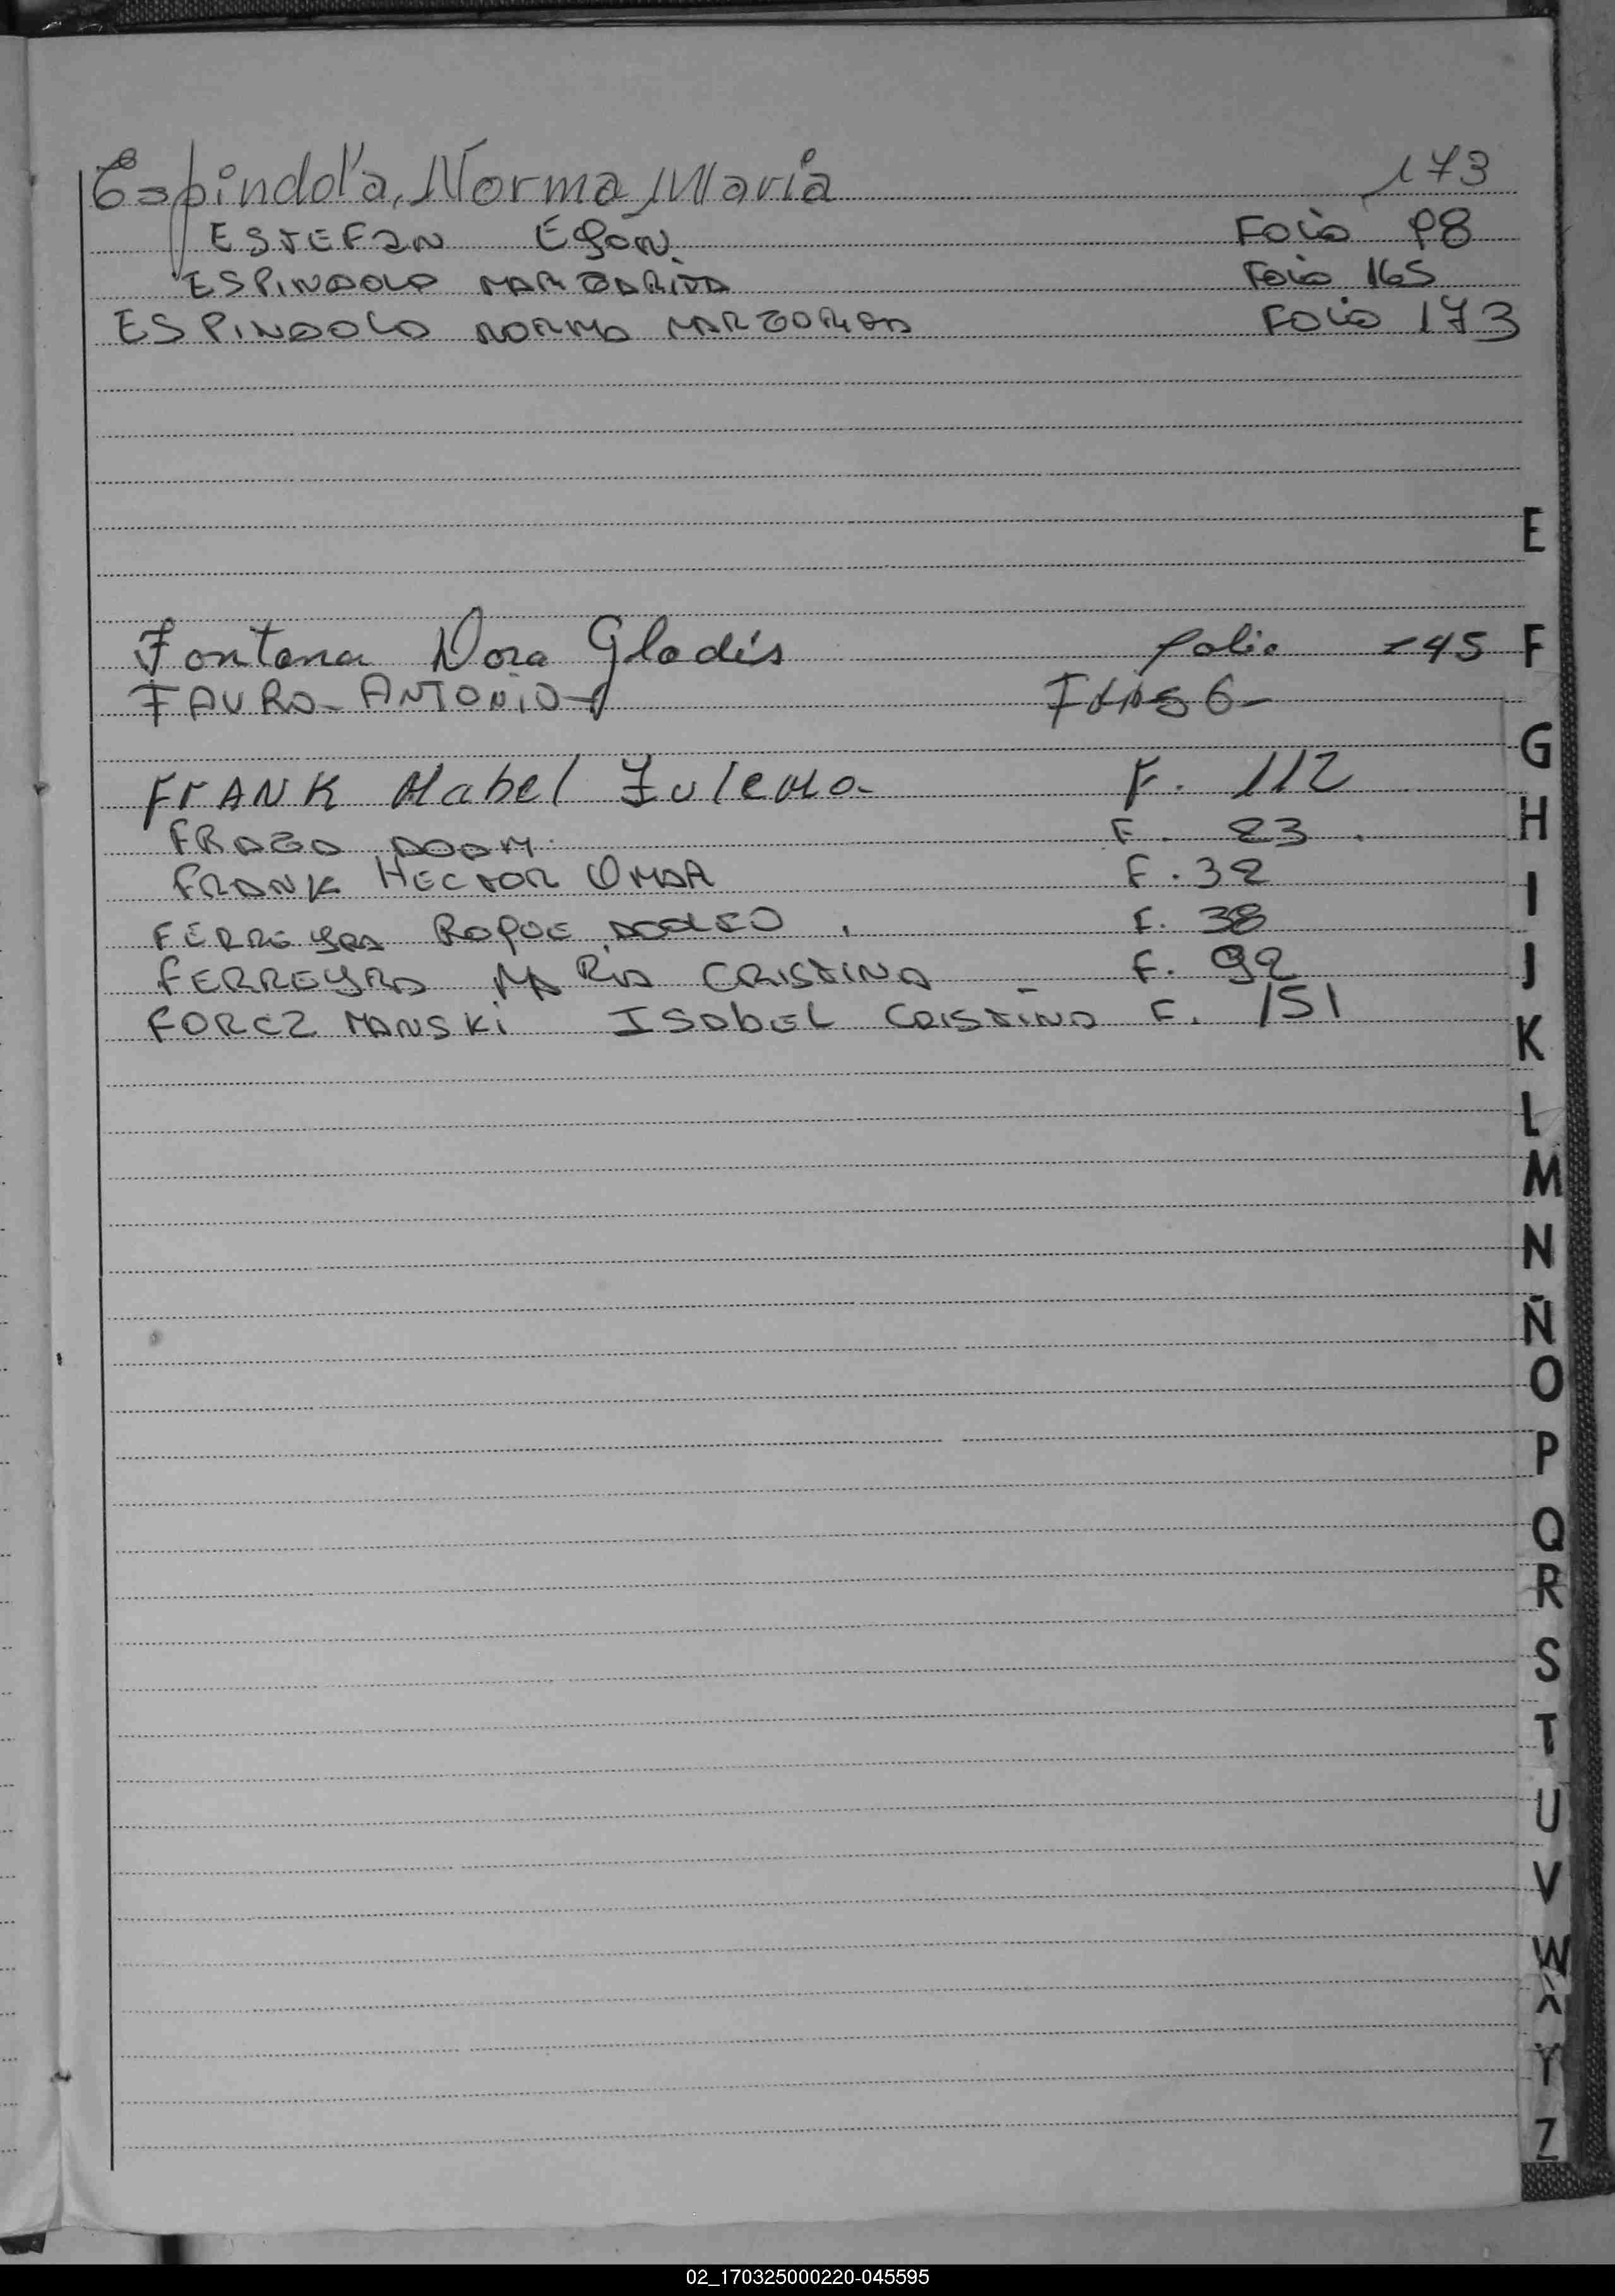 Espindola, Norma Maria 173
ESTEFAN EGON. Folio 98
ESPINDOLA MARGARITA Folio 165
ESPINDOLA NORMA MARGARITA Folio 173
E
Fontana Nora Gladis folio 145 F
FAURO - ANTONIO 6-
G
FRANK Mabel Zulema - F. 112
H
FRAGA ADAM. F. 23.
FRANK HECTOR OMAR F. 32
I
FERREYRA ROQUE ADOLFO. F. 38
FERREYRA MARIA CRISTINA - F. 92
J
FORCZMANSKI ISABEL CRISTINA F. 151
K
L
M
N
Ñ
O
P
Q
R
S
T
U
V
W
X
Y
Z
02_170325000220-045595